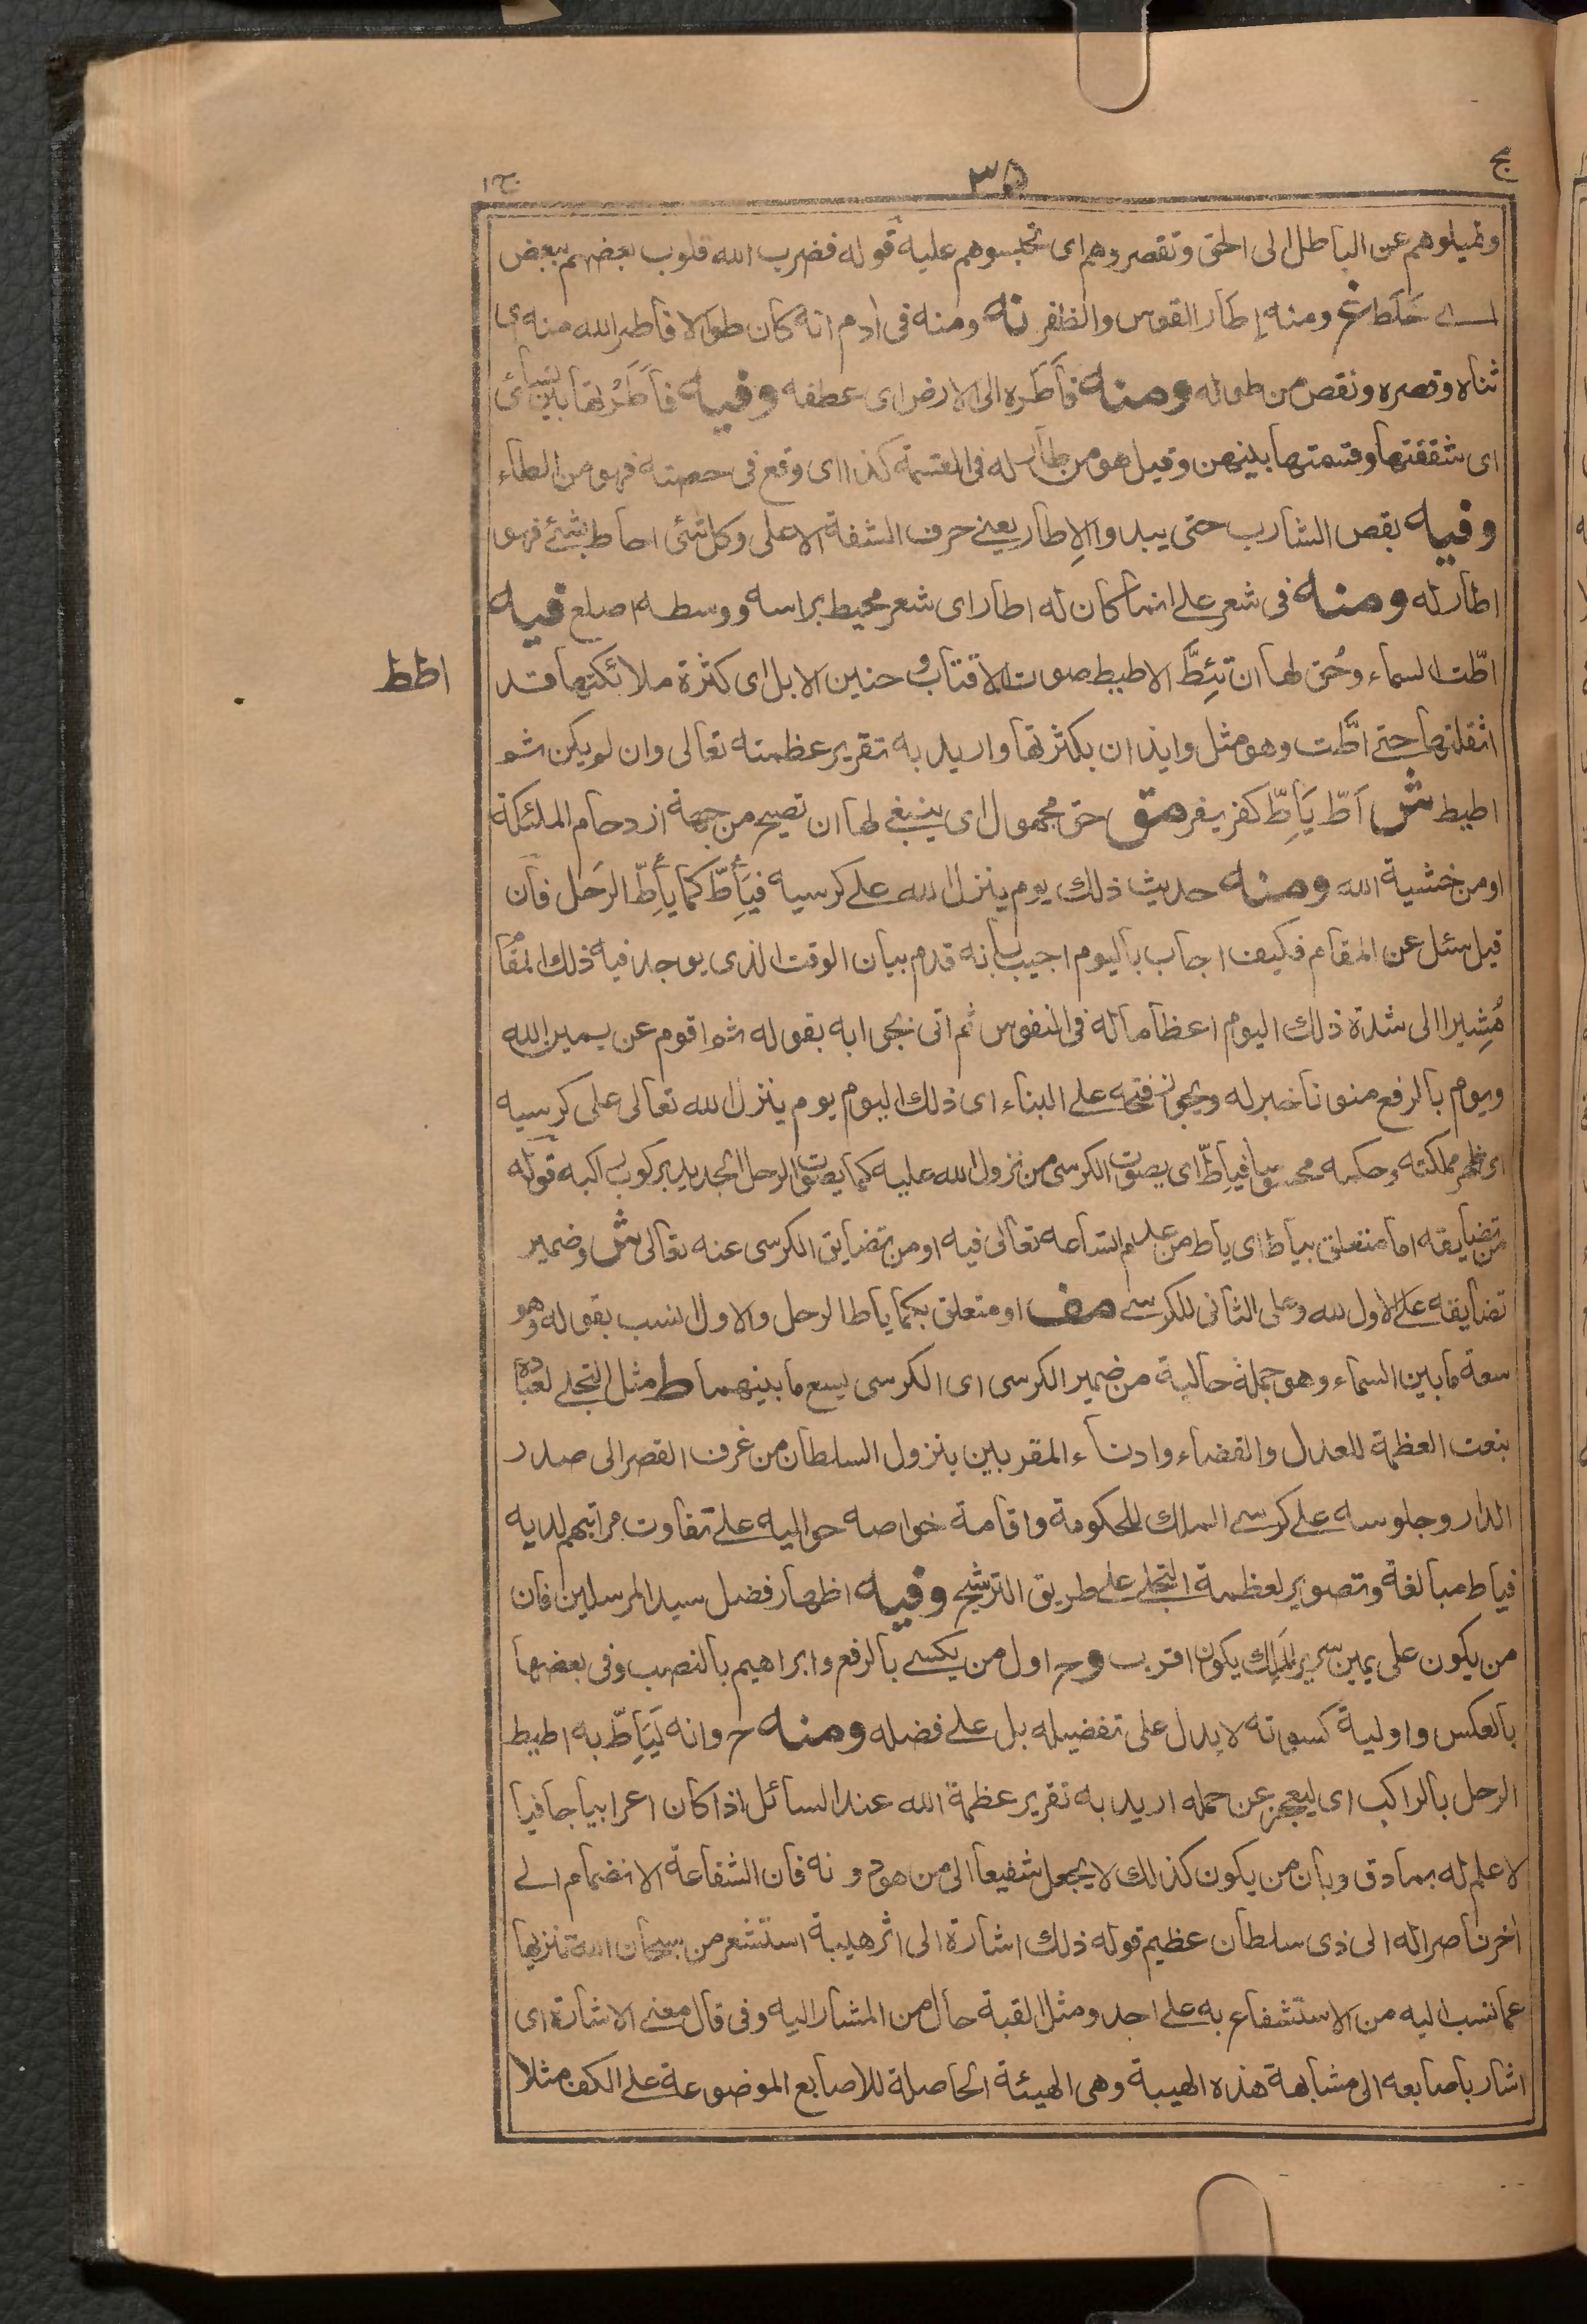 مج
٣٥
ج١
وتميلوهم عن الباطل الى الحق وتقصروهم اى تحبسوهم عليه قوله فضرب الله قلوب بعضهم ببعض
اے خَلَط غ ومنه إطار القوس والظفر نه ومنه فى ادم انه كان طوالا فاطر الله منه اى
ثناه وقصره ونقص من طوله ومنه فاَطَره الى الارض اى عطفه وفيه فاَطَرْتها بين نسائى
اى شققتها وقسمتها بينهن وقيل هو من طار له فى القسمة كذا اى وقع فى حصته فهو من الطاء
وفيه بقص الشارب حتى يبدو الاِطار يعنے حرف الشفة الاعلى وكل شئى احاط بشئے فهو
اطار له ومنه فى شعر علے انما كان له اطار اى شعر محيط براسه ووسطه اصلع فيه
اطط
اطّت السماء وحُق لها ان تَئِطَّ الاطيط صوت الاقتاب و حنين الابل اى كثرة ملائكتها قد
اثقلتها حتے اطَّت وهو مثل وايذان بكثرتها واريد به تقرير عظمته تعالى وان لم يكن ثم
اطيط ش اَطّ يَاِطّ كفر يفر مق حق مجهول اى ينبغى لها ان تصيح من جهة ازدحام الملئكة
او من خشية الله ومنه حديث ذلك يوم ينزل الله علے كرسيه فيَاِطّ كما يأطِّ الرَحل فان
قيل سئل عن المقام فكيف اجاب باليوم اجيب بانه قدم بيان الوقت الذى يوجد فيه ذلك المقام
مُشِيرا الى شدة ذلك اليوم اعظاما له فى النفوس ثم اتى بجوابه بقوله ثم اقوم عن يمين الله
ويوم بالرفع منونا خبر له ويجوز فتحه علے البناء اى ذلك اليوم يوم ينزل الله تعالى على كرسيه
اى مملكته وحكمه محسوسا فياطّ اى يصوت الكرسى من نزول الله عليه كما يصوت الرحل الجديد بركوب راكبه قوله
من تضايقه اما متعلق بياط اى ياط من عدم اتساعه تعالى فيه او من تضايق الكرسى عنه تعالى ش وضمير
تضايقه علے الاول لله وعلى الثانى للكرسے مف او متعلق بكما ياط الرحل والاول انسب بقوله وهو
سعة ما بين السماء وهو جملة حالية من ضمير الكرسى اى الكرسى يسع ما بينهما ط مثل التجلے لعباده
بنعت العظمة للعدل والقضاء وادناء المقربين بنزول السلطان من غرف القصر الى صدر
الدار وجلوسه علے كرسے الملك للحكومة واقامة خواصه حواليه علے تفاوت مراتبهم لديه
فياط مبالغة وتصوير لعظمة التجلے علے طريق الترشيح وفيه اظهار فضل سيد المرسلين فان
من يكون على يمين سرير المَلِك يكون اقرب وح اول من يكسے بالرفع وابراهيم بالنصب وفى بعضها
بالعكس واولية كسوته لا يدل على تفضيله بل علے فضله ومنه ح وانه لَيَاِطّ به اطيط
الرحل بالراكب اى ليعجز عن حمله اريد به تقرير عظمة الله عند السائل اذا كان اعرابيا جافيا
لا علم له بما دق وبان من يكون كذلك لا يجعل شفيعا الى من هو دونه فان الشفاعة الانضمام الے
اخر ناصرا له الى ذى سلطان عظيم قوله ذلك اشارة الى اثر هيبة استشعر من سبحان الله تنزيها
عما نسب اليه من الاستشفاع به علے احد ومثل القبة حال من المشار اليه وفى قال معنے الاشارة اى
اشار باصابعه الى مشابهة هذه الهيبة وهى الهيئة الحاصلة للاصابع الموضوعة علے الكف مثلا